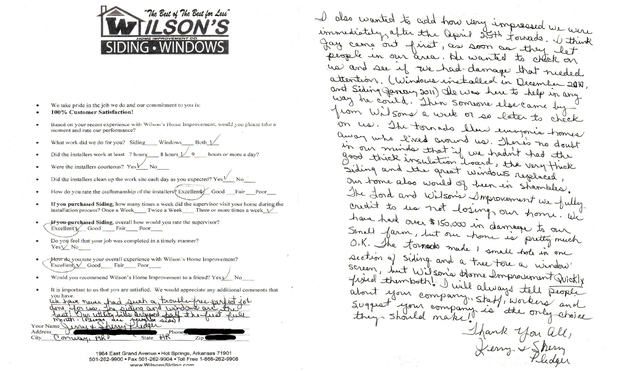 "The Best of The Best for Less"
WILSON'S
HOME IMPROVEMENT CO.
SIDING • WINDOWS
• We take pride in the job we do and our commitment to you is:
• 100% Customer Satisfaction!
• Based on your recent experience with Wilson's Home Improvement, would you please take a
moment and rate our performance?
• What work did we do for you? Siding ___ Windows ___ Both ✓
• Did the installers work at least 7 hours ___ 8 hours ✓ 9 hours or more a day?
• Were the installers courteous? Yes ✓ No___
• Did the installers clean up the work site each day as you expected? Yes ✓ No___
• How do you rate the craftsmanship of the installers? Excellent ✓ Good ___ Fair ___ Poor___
• If you purchased Siding, how many times a week did the supervisor visit your home during the
installation process? Once a Week___ Twice a Week___ Three or more times a week ✓
• If you purchased Siding, overall how would you rate the supervisor?
Excellent ✓ Good ___ Fair ___ Poor___
• Do you feel that your job was completed in a timely manner?
Yes ✓ No___
• How do you rate your overall experience with Wilson's Home Improvement?
Excellent ✓ Good ___ Fair ___ Poor___
• Would you recommend Wilson's Home Improvement to a friend? Yes ✓ No___
• It is important to us that you are satisfied. We would appreciate any additional comments
that you have.
We have never had such a trouble-free perfect job
done for us. The siding and windows are the
best. Our utility bills dropped half the first full
month.
Your Name Jerry & Sherry Pledger
Address Phone
City Conway, AR State AR Zip
1964 East Grand Avenue • Hot Springs, Arkansas 71901
501-262-9900 • Fax 501-262-9904 • Toll Free 1-866-262-9908
www.WilsonsSiding.com
I also wanted to add how very impressed we were
immediately after the April 25th tornado. I think
Jay came out first, as soon as they let
people in our area. He wanted to check on
us and see if we had damage that needed
attention. (Windows installed in December 2010,
and Siding January 2011) He was here to help in any
way he could. Then someone else came by
from Wilsons a week or so later to check
on us. The tornado blew everyone homes
away who lived around us. There's no doubt
in our minds that if we hadn't had the
good thick insulation board, the very thick
siding and the great windows replaced,
our home also would of been in shambles.
The Lord and Wilson's Improvement we fully
credit to us not losing our home. We
have had over $150,000 in damage to our
small farm, but our home is pretty much
O.K. The tornado made 1 small hole in one
section of siding and a tree tore a window
screen, but Wilson's Home Improvement Quickly
fixed them both! I will always tell people
about your company, staff, workers and
suggest your company is the only choice
they should make!
Thank You All,
Jerry & Sherry
Pledger